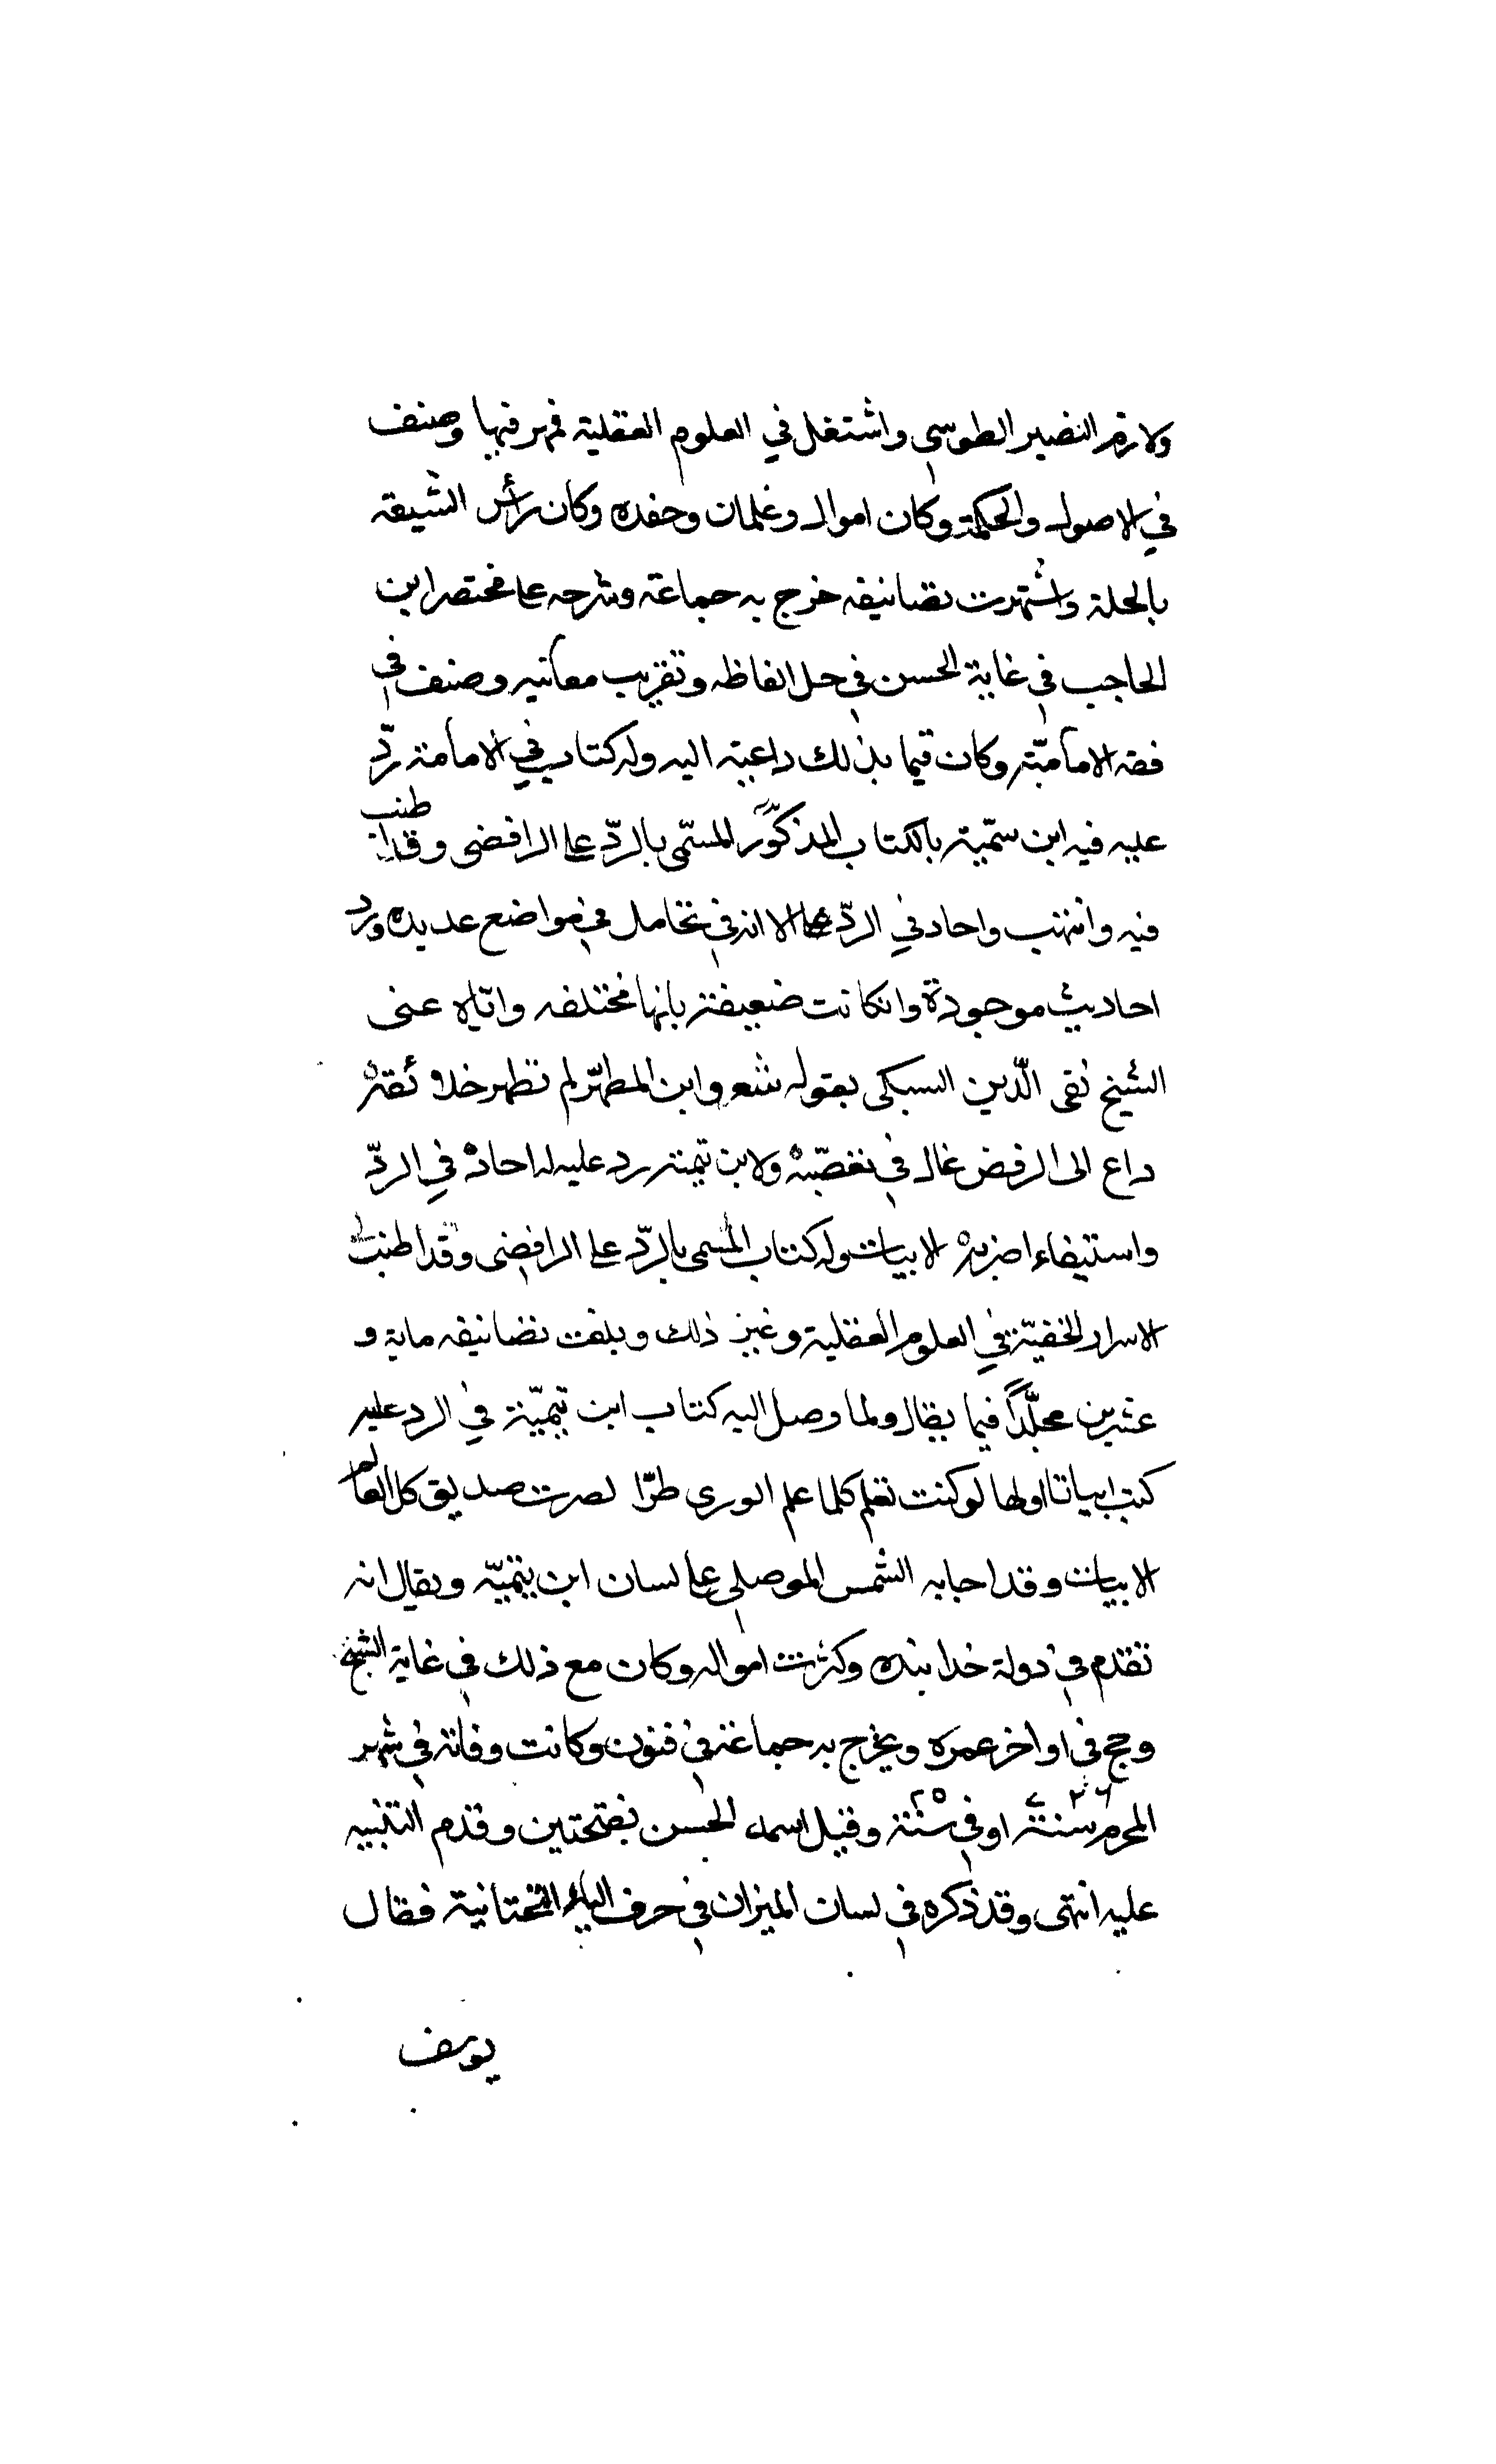 ولازم النصير الطوسي واشتغل في العلوم العقلية فمهر فيها وصنف
في الاصول والحكمة وكان اموال وغلمان وحفده وكان رأس الشيعة
بالحلة واشتهرت تصانيفه خرج به جماعة وشرحه على مختصر ابن
الحاجب في غاية الحسن في حل الفاظه وتقريب معانيه وصنف في
فقه الاماميّة وكان قيما بذلك داعية اليه وله كتاب في الامامة ردّ
عليه فيه ابن تيميّة بالكتاب المذكور المسمّى بالردّ على الرافضي وقد اطنب
فيه وانتهب واجاد في الردّ الا انه في تحامل في مواضع عديده ورد
احاديث موجودة وان كانت ضعيفة بانها مختلفه واياه عنى
الشيخ تقى الدّين السبكى بقوله شعر وابن المطهّر لم تطهر خلائقه
داع الى الرفض غال في تعصّبه ولابن تيمية رد عليه له اجاد في الردّ
واستيفاء اضربه الابيات وله كتاب المسمى بالردّ على الرافضى وقد اطنب
الاسرار الخفيّة في العلوم العقلية وغير ذلك وبلغت تصانيفه ماية و
عشرين مجلّداً فيما يقال ولما وصل اليه كتاب ابن تيميّة في الرد عليه
كتب ابياتا اولها لو كنت تعلم كلما علم الورى طرّا لصرت صديق كل العالم
الابيات وقد اجابه الشمس الموصلي على لسان ابن تيميّه ويقال انه
تقدم في دولة خدا بنده وكثرت امواله وكان مع ذلك في غاية الشح
وحج في اواخر عمره وتخرج به جماعة في فنون وكانت وفاته في شهر
المحرم سنة ٧٢٦ او في سنة ٢٥ وقيل اسمه الحسن بفتحتين وقدم التنبيه
عليه انتهى وقد ذكره في لسان الميزان في حرف الياء التحتانية فقال
يوسف